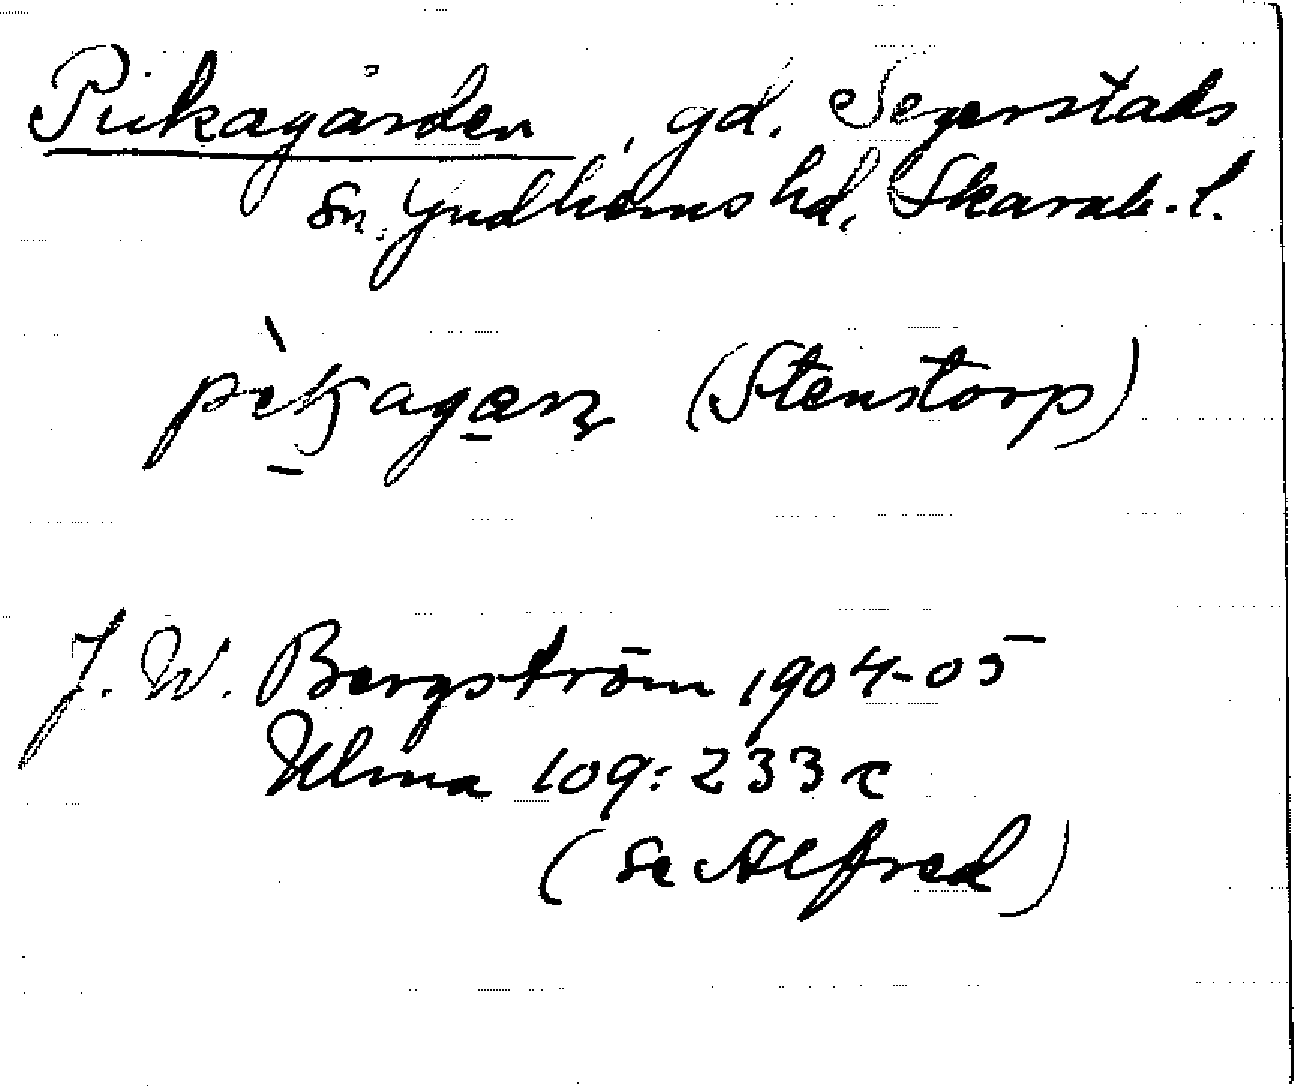 Pickagården, gd. Segerstads
sn. Gudhems hd, Skarab. l.
(Stenstorp)
J. W. Bergström 1904-05
Ulma 109:233 c
(se Alfred)